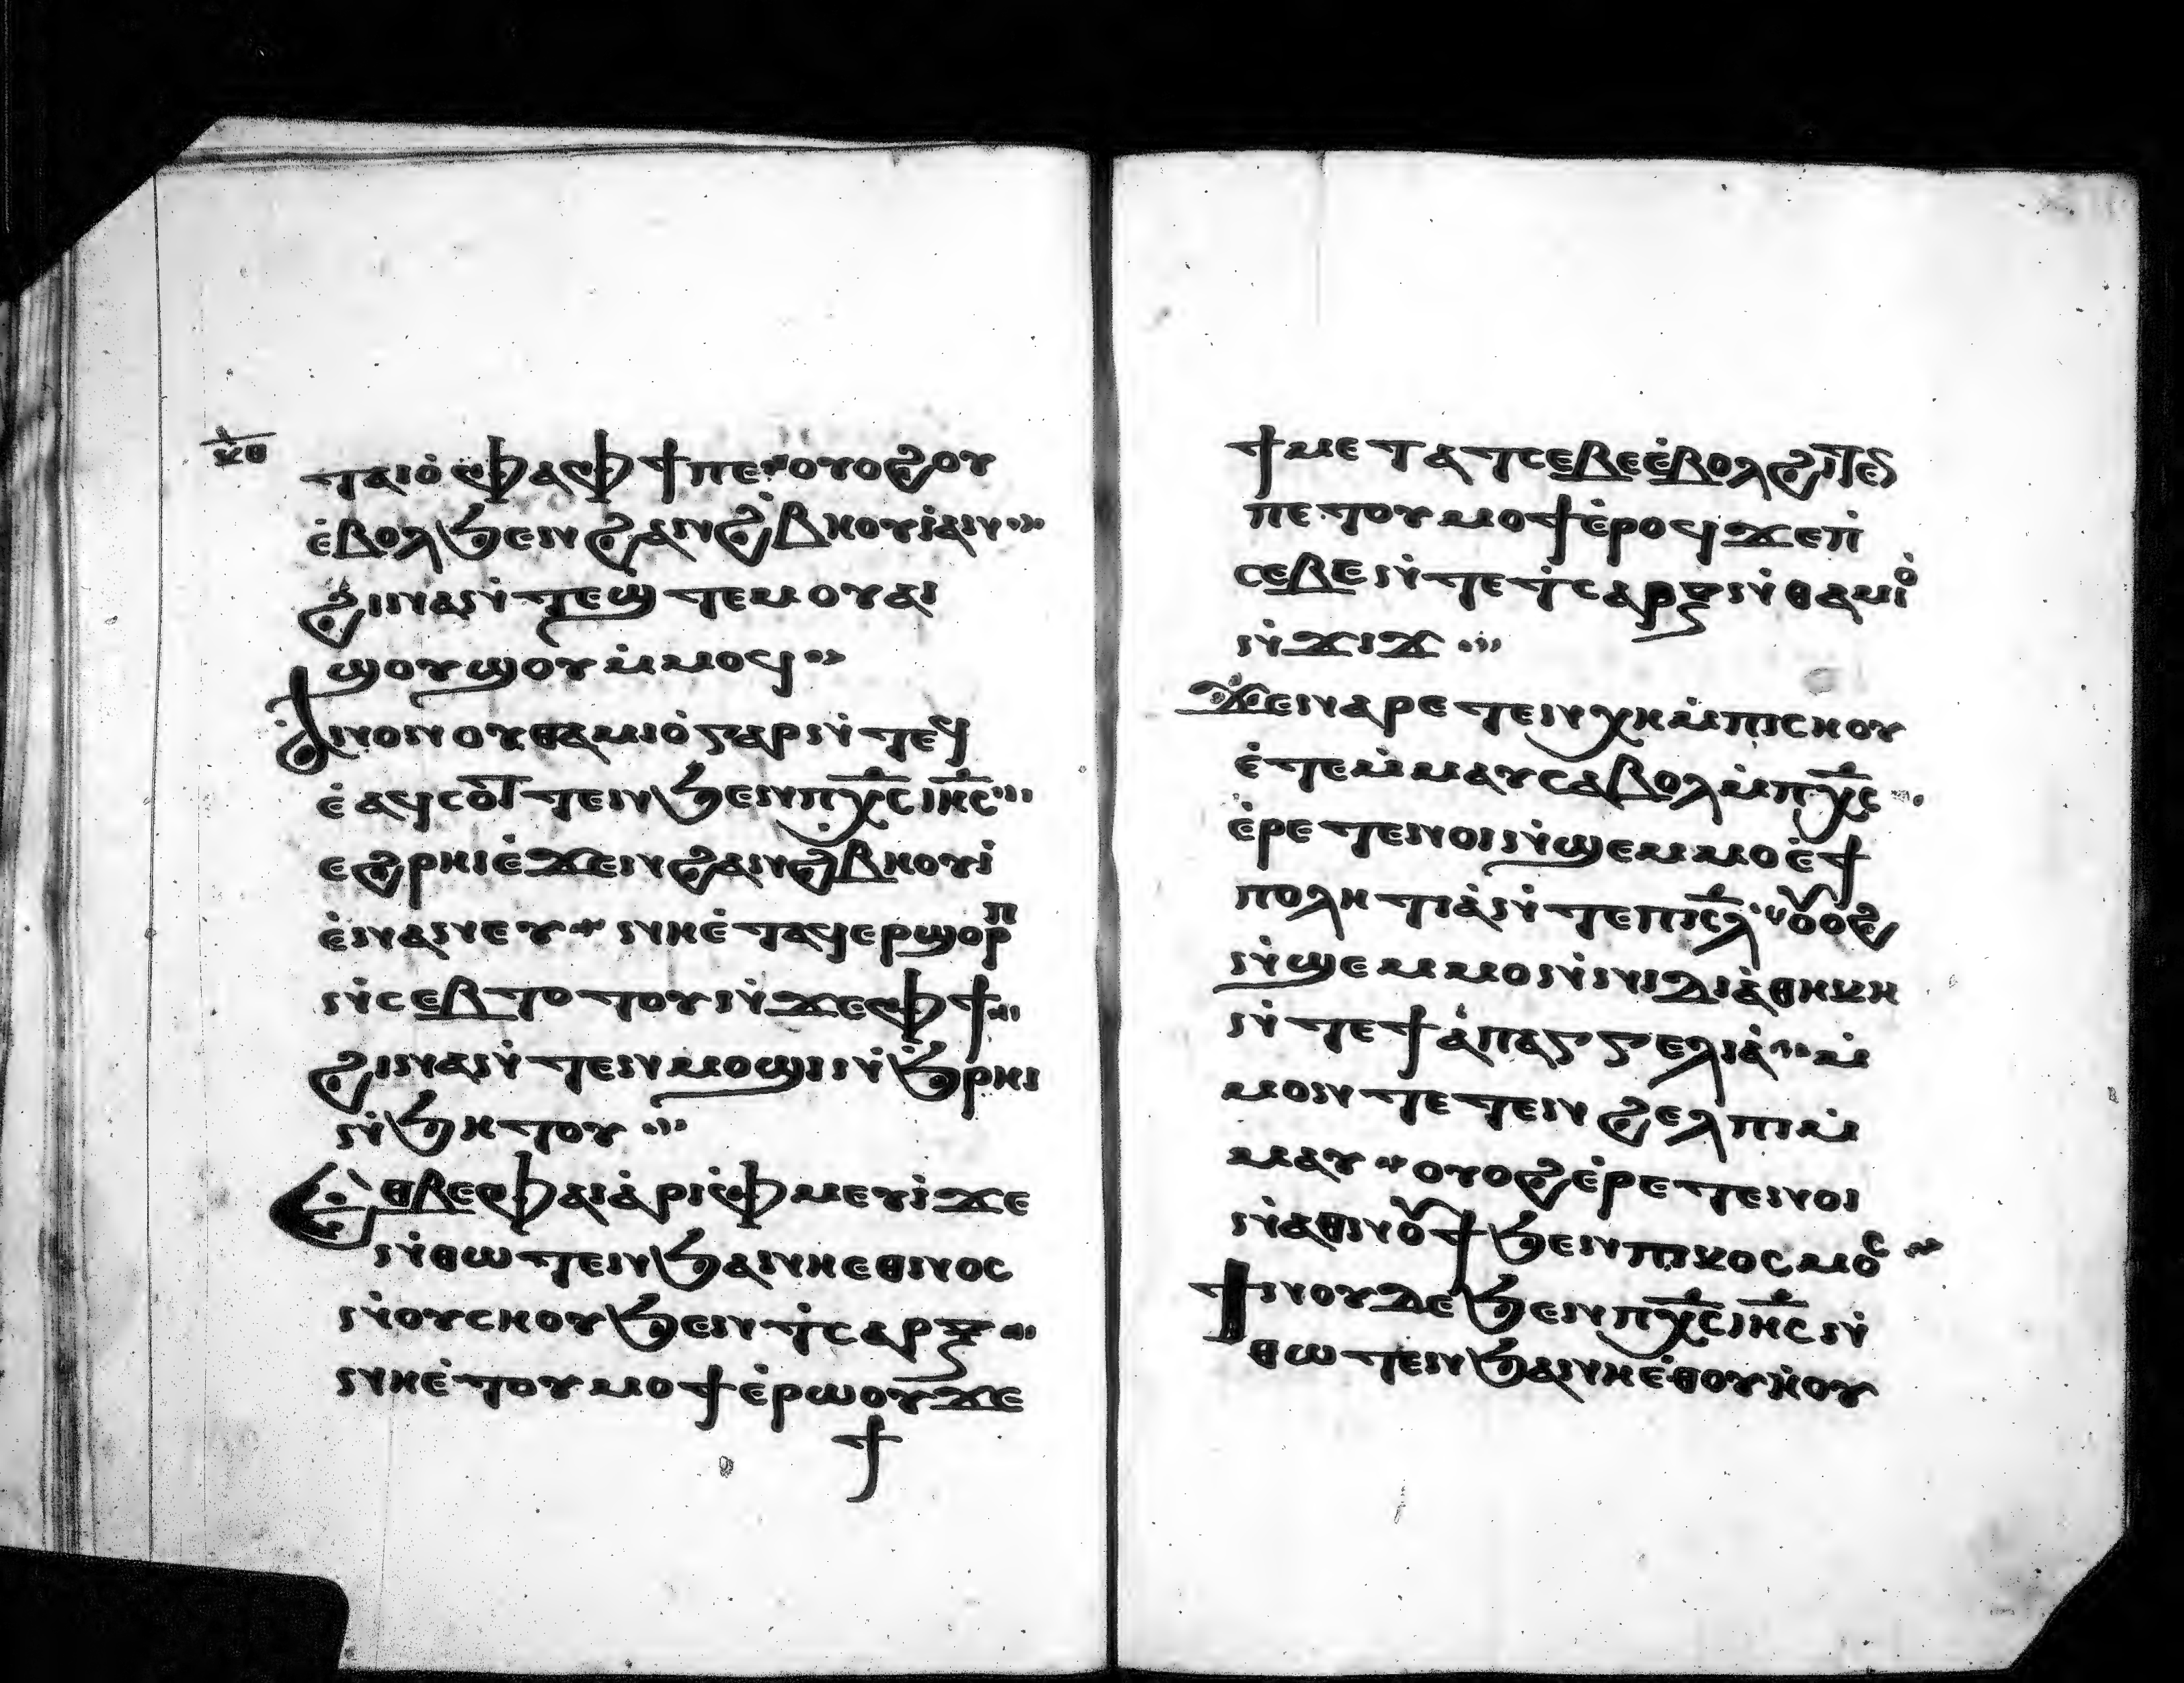 ⲕⲑ
ⲧⲁⲓⲟ̇ ⲫⲁⲫϯⲡⲉ·ⲟⲩⲟϩⲟⲩ
ⲉ̇ⲃⲟⲗϧⲉⲛϩⲁⲛϩ̇ⲃⲏⲟⲩⲓ̇ⲁⲛ··
ϩⲓⲛⲁⲛ̇ⲧⲉϣⲧⲉⲙⲟⲩⲁⲓ
ϣⲟⲩϣⲟⲩⲙ̇ⲙⲟϥ··
ⲁⲛⲟⲛⲟⲩⲑⲁⲙⲓⲟ̇ⲅⲁⲣⲛ̇ⲧⲉϥ
ⲉ̇ⲁϥⲥⲟⲛⲧⲧⲉⲛϧⲉⲛⲡⲭ̅ⲥ̅ⲓⲏ̅ⲥ̅···
ⲉϩⲣⲏⲓⲉ̇ϫⲉⲛϩⲁⲛϩ̇ⲃⲏⲟⲩⲓ̇
ⲉ̇ⲛⲁⲛⲉⲩ·ⲛⲏⲉ̇ⲧⲁϥⲉⲣϣⲟⲣⲡ
ⲛ̇ⲥⲉⲃⲧⲟⲧⲟⲩⲛ̇ϫⲉⲫϯ···
ϩⲓⲛⲁⲛ̇ⲧⲉⲛⲙⲟϣⲓⲛ̇ϧ̇ⲣⲏⲓ
ⲛ̇ϧⲏⲧⲟⲩ···
Ⲉⲑⲃⲉⲫⲁⲓⲁ̇ⲣⲓⲫ̇ⲙⲉⲩⲓ̇ϫⲉ
ⲛ̇ⲑⲱⲧⲉⲛϧⲁⲛⲏⲉⲑⲛⲟⲥ
ⲛ̇ⲟⲩⲥⲏⲟⲩϧⲉⲛⲧ̇ⲥⲁⲣⲝ···
ⲛⲏⲉ̇ⲧⲟⲩⲙⲟϯⲉ̇ⲣⲱⲟⲩϫⲉ
ϯ
ϯⲙⲉⲧⲁⲧⲥⲉⲃⲉⲉ̇ⲃⲟⲗϩⲓⲧⲉⲛ
ⲡⲉⲧⲟⲩⲙⲟϯⲉ̇ⲣⲟϥϫⲉⲡ̇
ⲥⲉⲃⲉⲛ̇ⲧⲉⲧ̇ⲥⲁⲣⲝⲛ̇ⲑⲁⲙⲓⲟ̇
ⲛ̇ϫⲓϫ···
Ϫⲉⲛⲁⲣⲉⲧⲉⲛⲭⲏⲙ̇ⲡⲓⲥⲏⲟⲩ
ⲉ̇ⲧⲉⲙ̇ⲙⲁⲩⲥⲁⲃⲟⲗⲙ̇ⲡⲭ̅ⲥ̅··
ⲉ̇ⲣⲉⲧⲉⲛⲟⲓⲛ̇ϣⲉⲙⲙⲟⲉ̇ϯ
ⲡⲟⲗⲏⲧⲓⲁ̇ⲛ̇ⲧⲉⲡⲓⲥ̅ⲗ̅·ⲟⲩⲟϩ
ⲛ̇ϣⲉⲙⲙⲟⲛ̇ⲛⲓⲇⲓⲁ̇ⲑⲏⲕⲏ
ⲛ̇ⲧⲉϯⲁ̇ⲡⲁⲅⲅⲉⲗⲓⲁ̇··ⲙ̇
ⲙⲟⲛⲧⲉⲧⲉⲛϩⲉⲗⲡⲓⲙ̇
ⲙⲁⲩ·ⲟⲩⲟϩⲉ̇ⲣⲉⲧⲉⲛⲟⲓ
ⲛ̇ⲁⲑⲛⲟⲩϯϧⲉⲛⲡⲓⲕⲟⲥⲙⲟⲥ··
ϯⲛⲟⲩⲇⲉϧⲉⲛⲡⲭ̅ⲥ̅ⲓⲏ̅ⲥ̅ⲛ̇
ⲑⲱⲧⲉⲛϧⲁⲛⲏⲉ̇ⲑⲟⲩⲏ̇ⲟⲩ